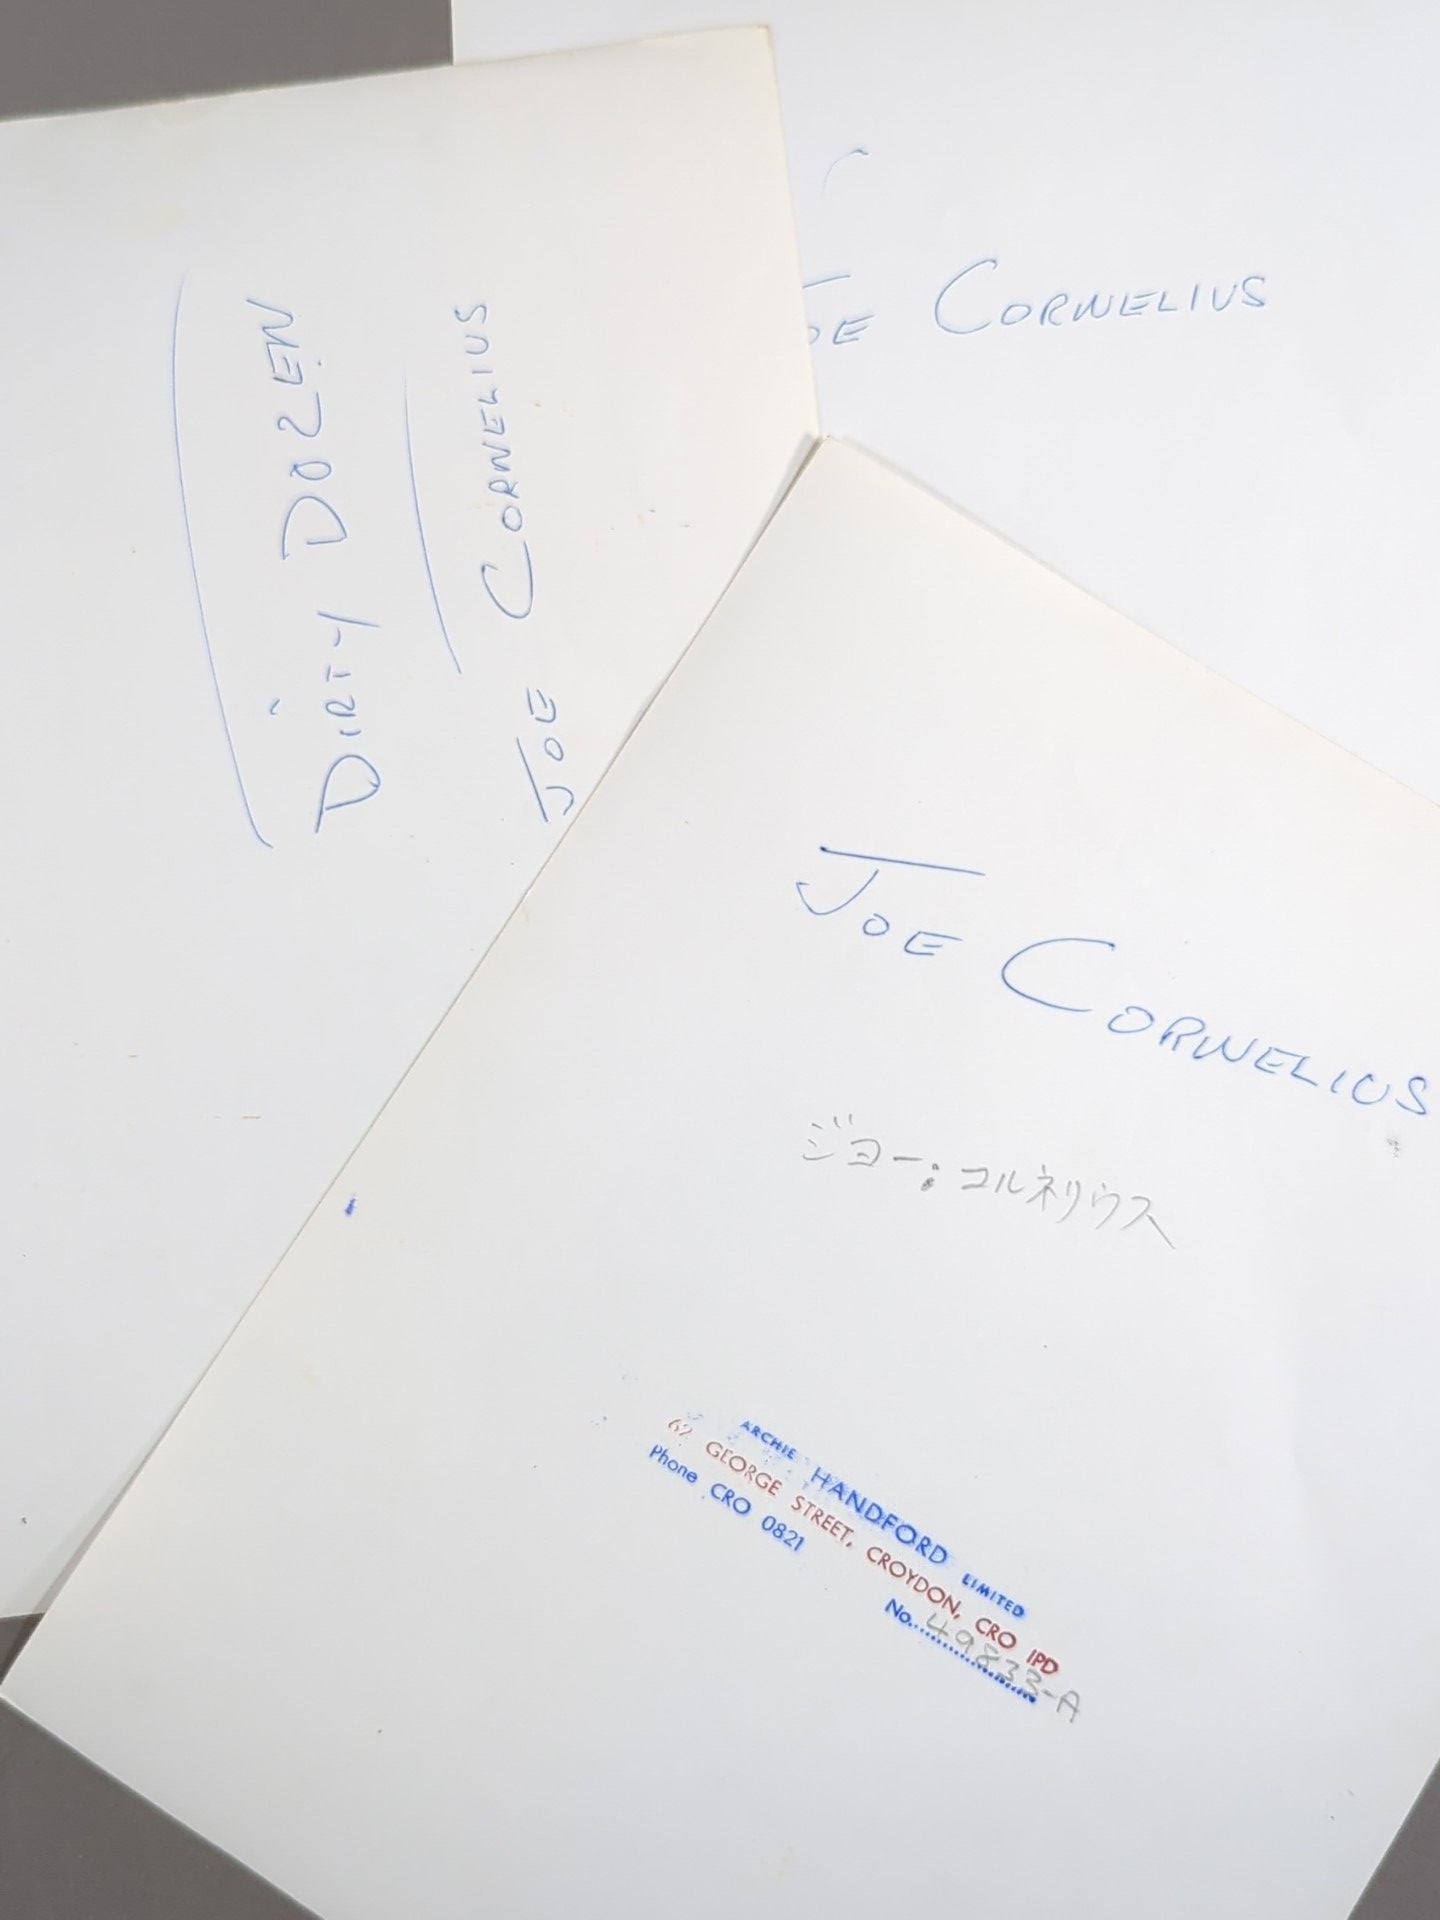 DIRTY DOZEN
JOE CORNELIUS
JOE CORNELIUS
JOE CORNELIUS
ジョー:コルネリウス
ARCHIE HANDFORD LIMITED
69 GEORGE STREET, CROYDON, CRO 1PD
Phone CRO 0821
No. 49833-A